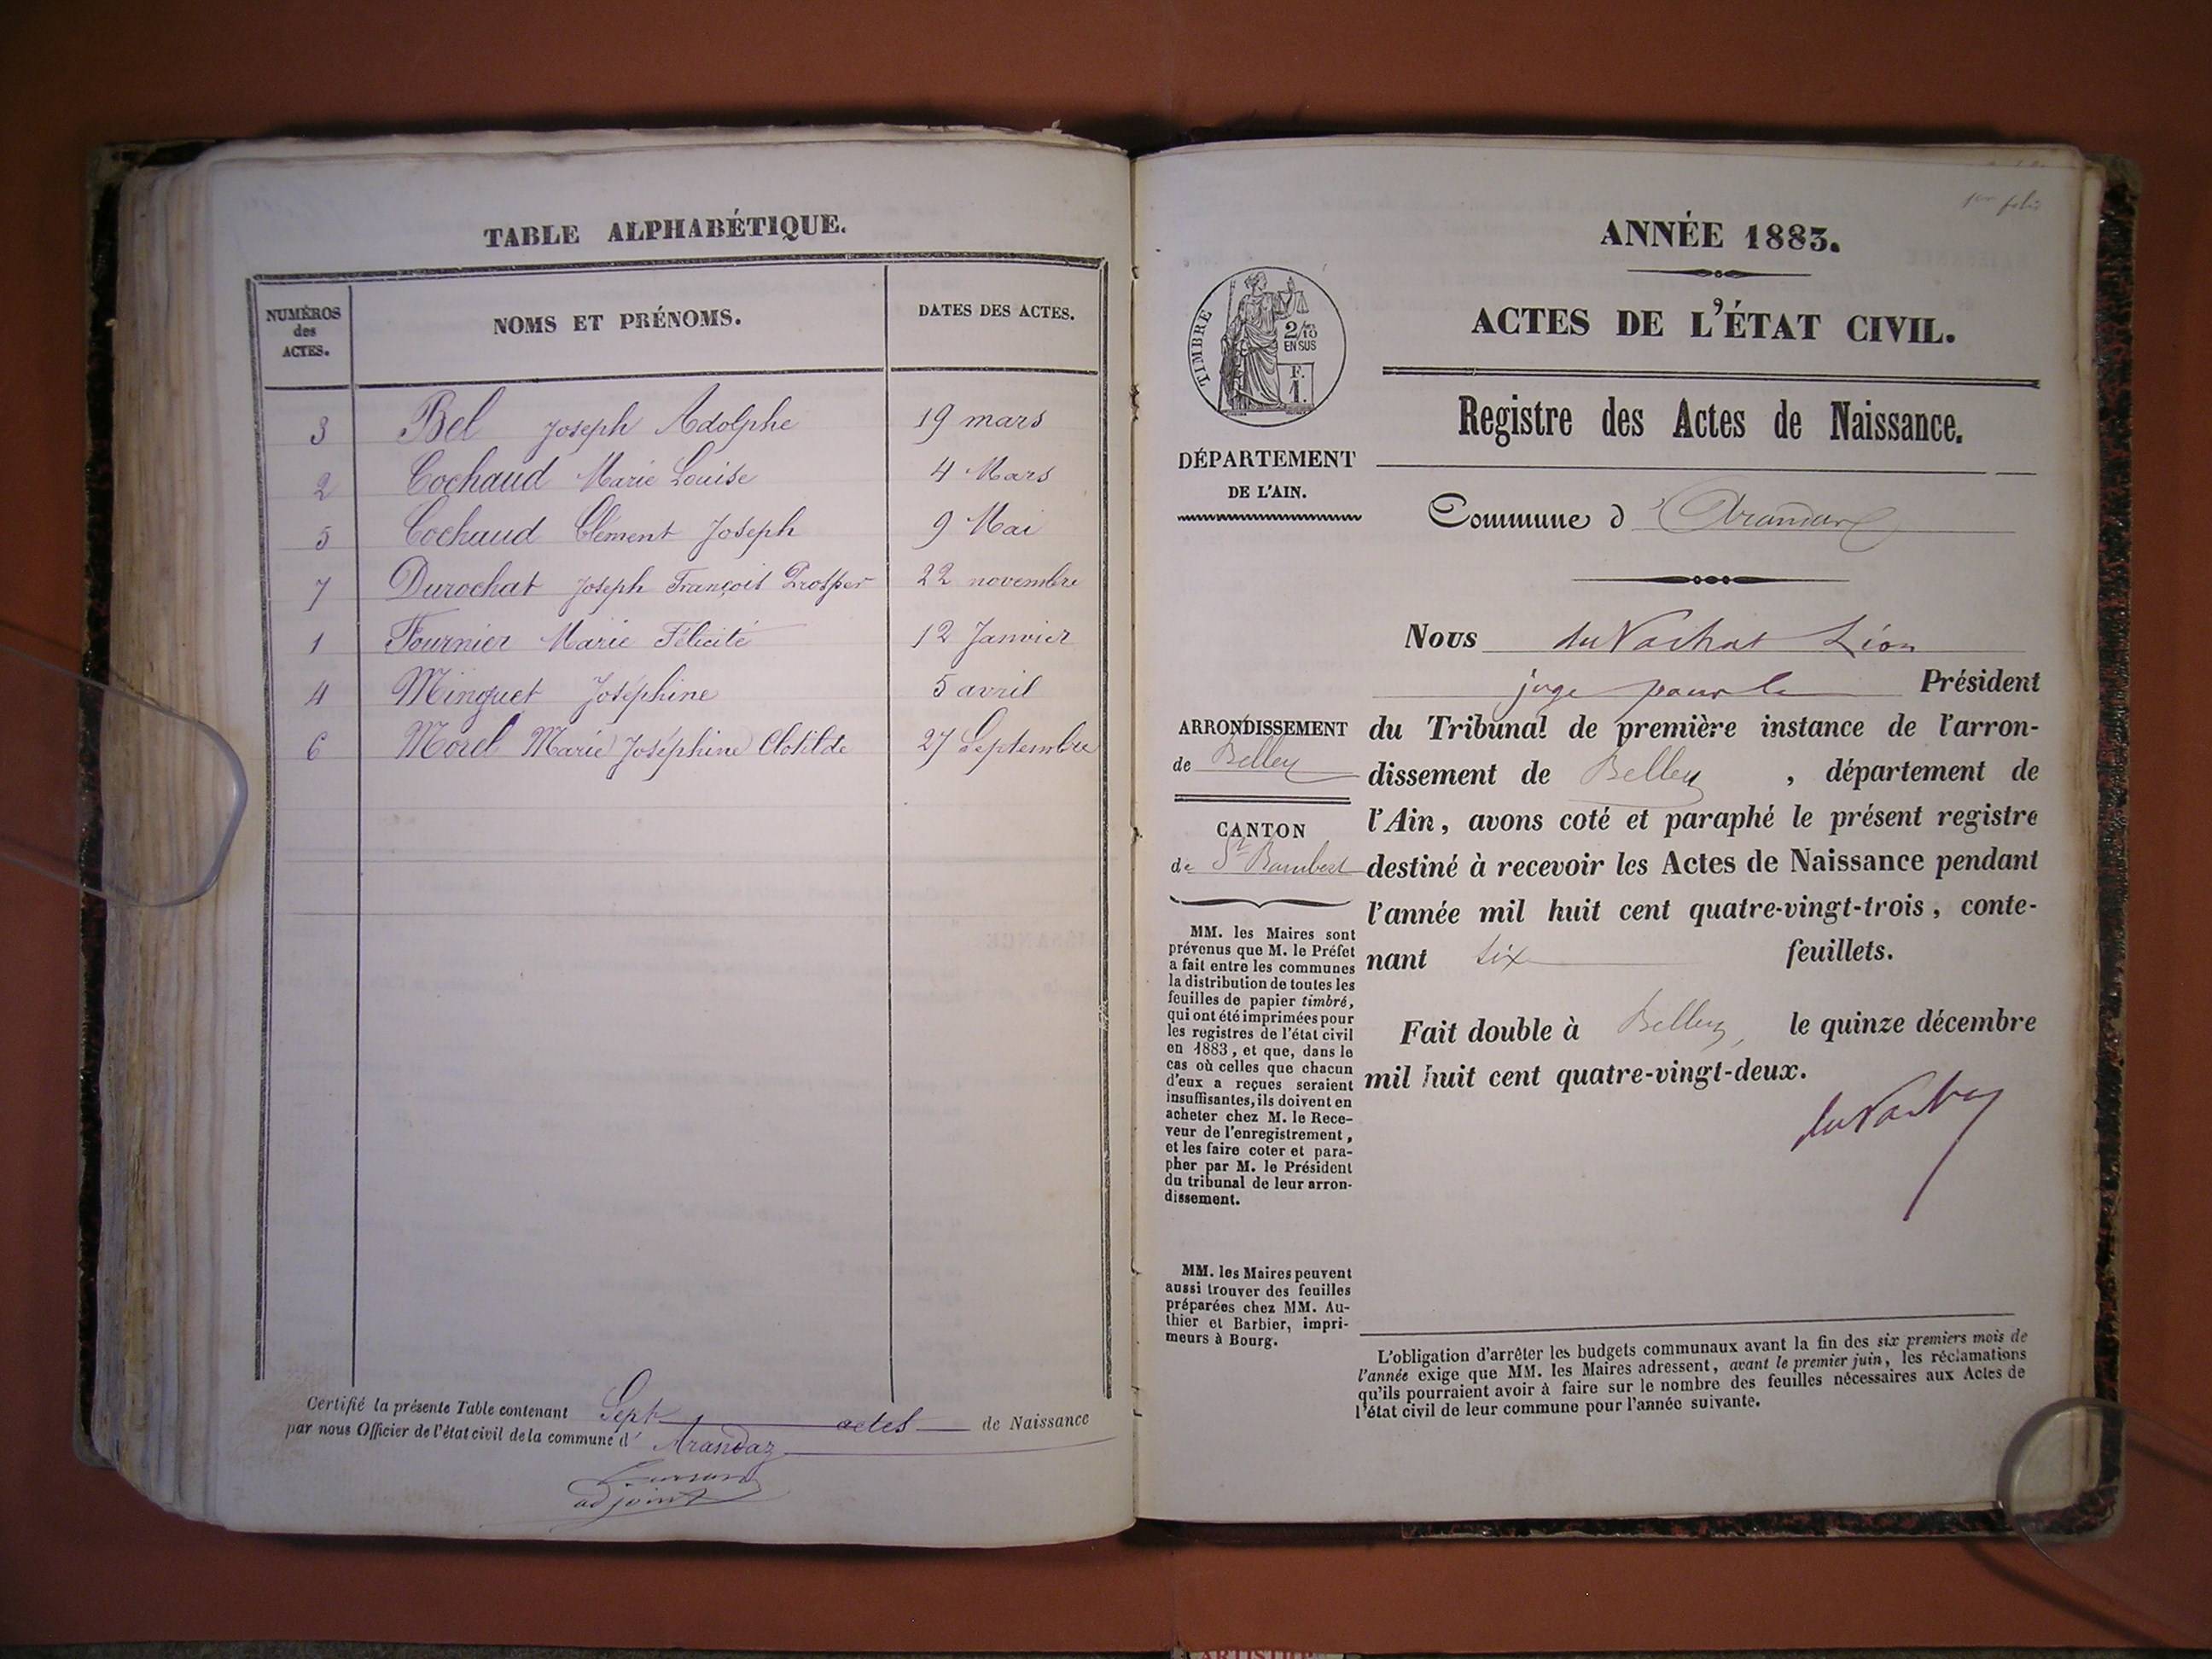 TABLE ALPHABÉTIQUE.
NUMÉROS des ACTES.
NOMS ET PRÉNOMS.
DATES DES ACTES.
3 Bel Joseph Adolphe 19 mars
2 Cochaud Marie Louise 4 Mars
5 Cochaud Clément Joseph 9 Mai
7 Durochat Joseph François Prosper 22 novembre
1 Fournier Marie Félicité 12 Janvier
4 Minguet Joséphine 5 avril
6 Morel Marie Joséphine Clotilde 27 Septembre
Certifié la présente Table contenant Sept actes de Naissance
par nous Officier de l'état civil de la commune d' Arandaz
adjoint
1er folio
ANNÉE 1883.
ACTES DE L'ÉTAT CIVIL.
Registre des Actes de Naissance.
TIMBRE
2/10
EN SUS
F.
1.
DÉPARTEMENT
DE L'AIN.
Commune d'Arandas
Nous du Vachat Léon
juge pour le Président
du Tribunal de première instance de l'arron-
dissement de Belley, département de
l'Ain, avons coté et paraphé le présent registre
destiné à recevoir les Actes de Naissance pendant
l'année mil huit cent quatre-vingt-trois, conte-
nant six feuillets.
Fait double à Belley, le quinze décembre
mil huit cent quatre-vingt-deux.
du Vachat
ARRONDISSEMENT
de Belley
CANTON
de St Rambert
MM. les Maires sont
prévenus que M. le Préfet
a fait entre les communes
la distribution de toutes les
feuilles de papier timbré,
qui ont été imprimées pour
les registres de l'état civil
en 1883, et que, dans le
cas où celles que chacun
d'eux a reçues seraient
insuffisantes, ils doivent en
acheter chez M. le Rece-
veur de l'enregistrement,
et les faire coter et para-
pher par M. le Président
du tribunal de leur arron-
dissement.
MM. les Maires peuvent
aussi trouver des feuilles
préparées chez MM. Au-
thier et Barbier, impri-
meurs à Bourg.
L'obligation d'arrêter les budgets communaux avant la fin des six premiers mois de
l'année exige que MM. les Maires adressent, avant le premier juin, les réclamations
qu'ils pourraient avoir à faire sur le nombre des feuilles nécessaires aux Actes de
l'état civil de leur commune pour l'année suivante.